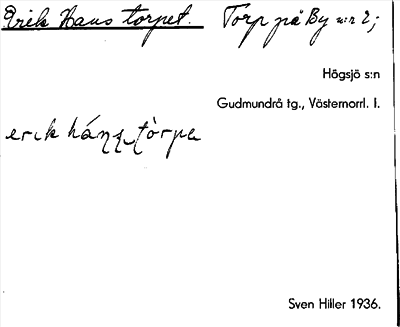 Erik Hans torpet. Torp på By n:r 2;
Högsjö s:n
Gudmundrå tg., Västernorrl. l.
erik háns tòrpe
Sven Hiller 1936.